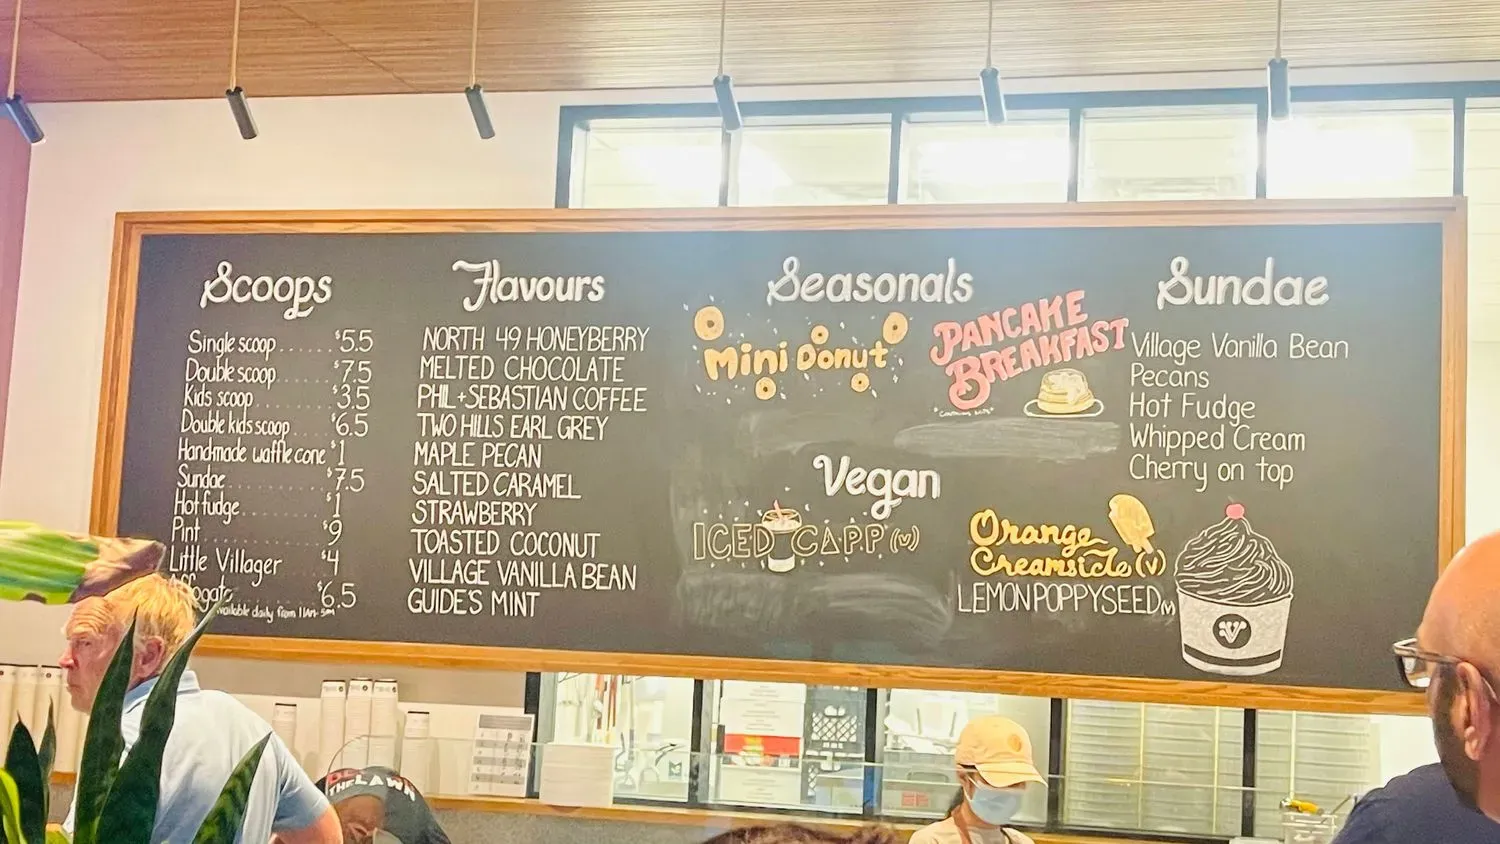 Scoops
Single scoop ...... $5.5
Double scoop ...... $7.5
Kids scoop ...... $3.5
Double kids scoop ..... $6.5
Handmade waffle cone $1
Sundae ...... $7.5
Hot fudge ...... $1
Pint ...... $9
Little Villager $4
Affogato $6.5
available daily from 11AM-5PM
Flavours
NORTH 49 HONEYBERRY
MELTED CHOCOLATE
PHIL + SEBASTIAN COFFEE
TWO HILLS EARL GREY
MAPLE PECAN
SALTED CARAMEL
STRAWBERRY
TOASTED COCONUT
VILLAGE VANILLA BEAN
GUIDE'S MINT
Seasonals
Mini Donut
PANCAKE
BREAKFAST
Vegan
ICED CAPP (V)
Orange
Creamsicle (V)
LEMON POPPYSEED (V)
Sundae
Village Vanilla Bean
Pecans
Hot Fudge
Whipped Cream
Cherry on top
V
THE LAWN